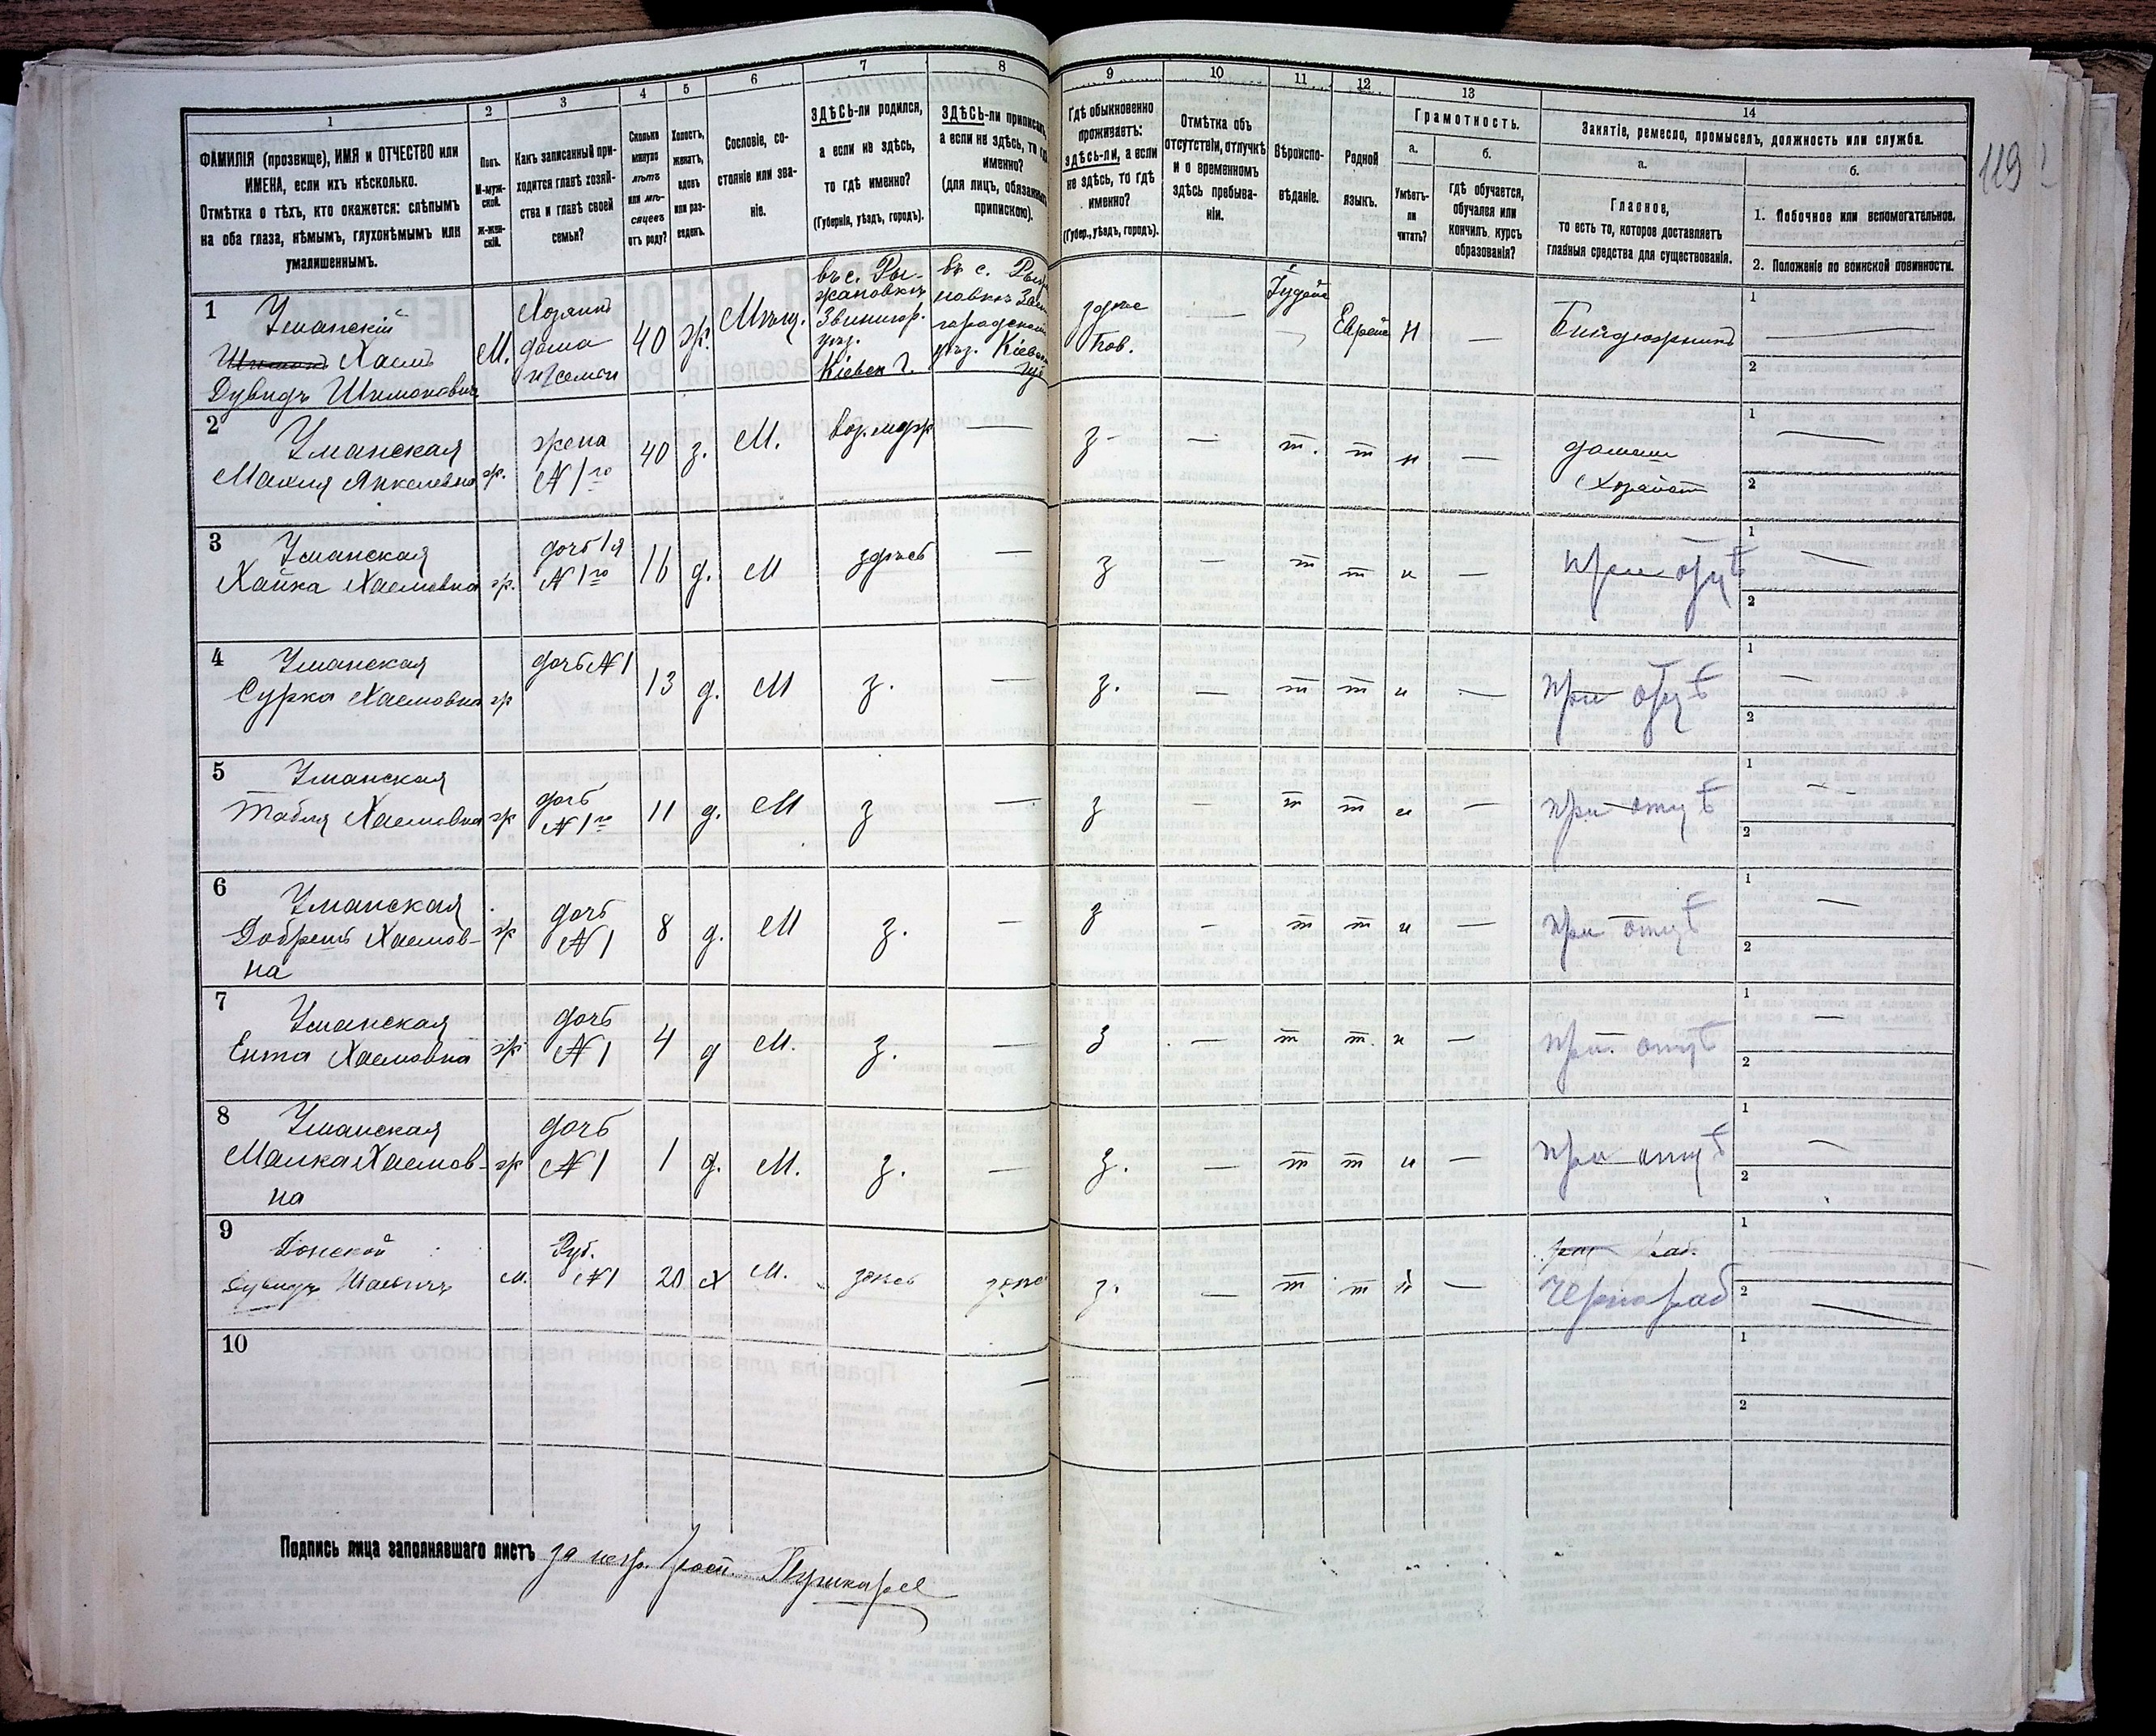 1
2
3
4
5
6
7
8
9
10
11
12
13
14
ФАМИЛІЯ (прозвище), ИМЯ и ОТЧЕСТВО или
ИМЕНА, если ихъ нѣсколько.
Отмѣтка о тѣхъ, кто окажется: слѣпымъ
на оба глаза, нѣмымъ, глухонѣмымъ или
умалишеннымъ.
Полъ.
М-муж-
ской.
Ж-жен-
скій.
Какъ записанный при-
ходится главѣ хозяй-
ства и главѣ своей
семьи?
Сколько
минуло
лѣтъ
или мѣ-
сяцевъ
отъ роду?
Холостъ,
женатъ,
вдовъ
или раз-
веденъ.
Сословіе, со-
стояніе или зва-
ніе.
ЗДѢСЬ-ли родился,
а если не здѣсь,
то гдѣ именно?
(Губернія, уѣздъ, городъ).
ЗДѢСЬ-ли приписанъ,
а если не здѣсь, то гдѣ
именно?
(для лицъ, обязанныхъ
припискою).
Гдѣ обыкновенно
проживаетъ:
здѣсь-ли, а если
не здѣсь, то гдѣ
именно?
(Губер., уѣздъ, городъ).
Отмѣтка объ
отсутствіи, отлучкѣ
и о временномъ
здѣсь пребыва-
ніи.
Вѣроиспо-
вѣданіе.
Родной
языкъ.
Грамотность.
а.
Умѣетъ-
ли
читать?
б.
гдѣ обучается,
обучался или
кончилъ курсъ
образованія?
Занятіе, ремесло, промыселъ, должность или служба.
а.
Главное,
то есть то, которое доставляетъ
главныя средства для существованія.
б.
1. Побочное или вспомогательное.
2. Положеніе по воинской повинности.
119
1
Уманскій
Хаимъ
Дувидъ Шимоновичъ
М.
Хозяинъ
дома
и семьи
40
ж.
Мѣщ.
въ с. Ры-
жановкѣ
Звенигор.
уѣз.
Кіевск Г.
въ с.
здѣсь
Іудейс
Еврейс
Н
—
Биндюжникъ
1
2
2
Уманская
Малия Янкелевна
ж.
жена
N 1го
40
з.
М.
—
з
—
т.
т
н
—
домашн
1
2
3
Уманская
Хайка Хаимовна
ж.
дочь 1я
N 1го
16
д.
М
здѣсь
—
з
—
т
т
н
—
при отцѣ
1
2
4
Уманская
Сурка Хаимовна
ж
дочь N 1
13
д.
М
з.
—
з.
—
т
т
н
—
при отцѣ
1
2
5
Уманская
Табля Хаимовна
ж
дочь
N 1го
11
д.
М
з
—
з
—
т
т
н
—
при отцѣ
1
2
6
Уманская
Добришъ Хаимов-
на
ж
дочь
N 1
8
д.
М
з.
—
з
—
т
т
н
—
при отцѣ
1
2
7
Уманская
Ента Хаимовна
ж
дочь
N 1
4
д
М.
з.
—
з
—
т
т.
н
—
при отцѣ
1
2
8
Уманская
Малка Хаимов-
на
ж
дочь
N 1
1
д.
М.
з.
—
з.
—
т
т
н
—
при отцѣ
1
2
9
Донской
Дувидъ
м.
N 1
20
х
М.
здѣсь
з.
—
т
т
н
—
Чернораб
1
2
10
1
2
Подпись лица заполнявшаго листъ за негр. Пушкарев